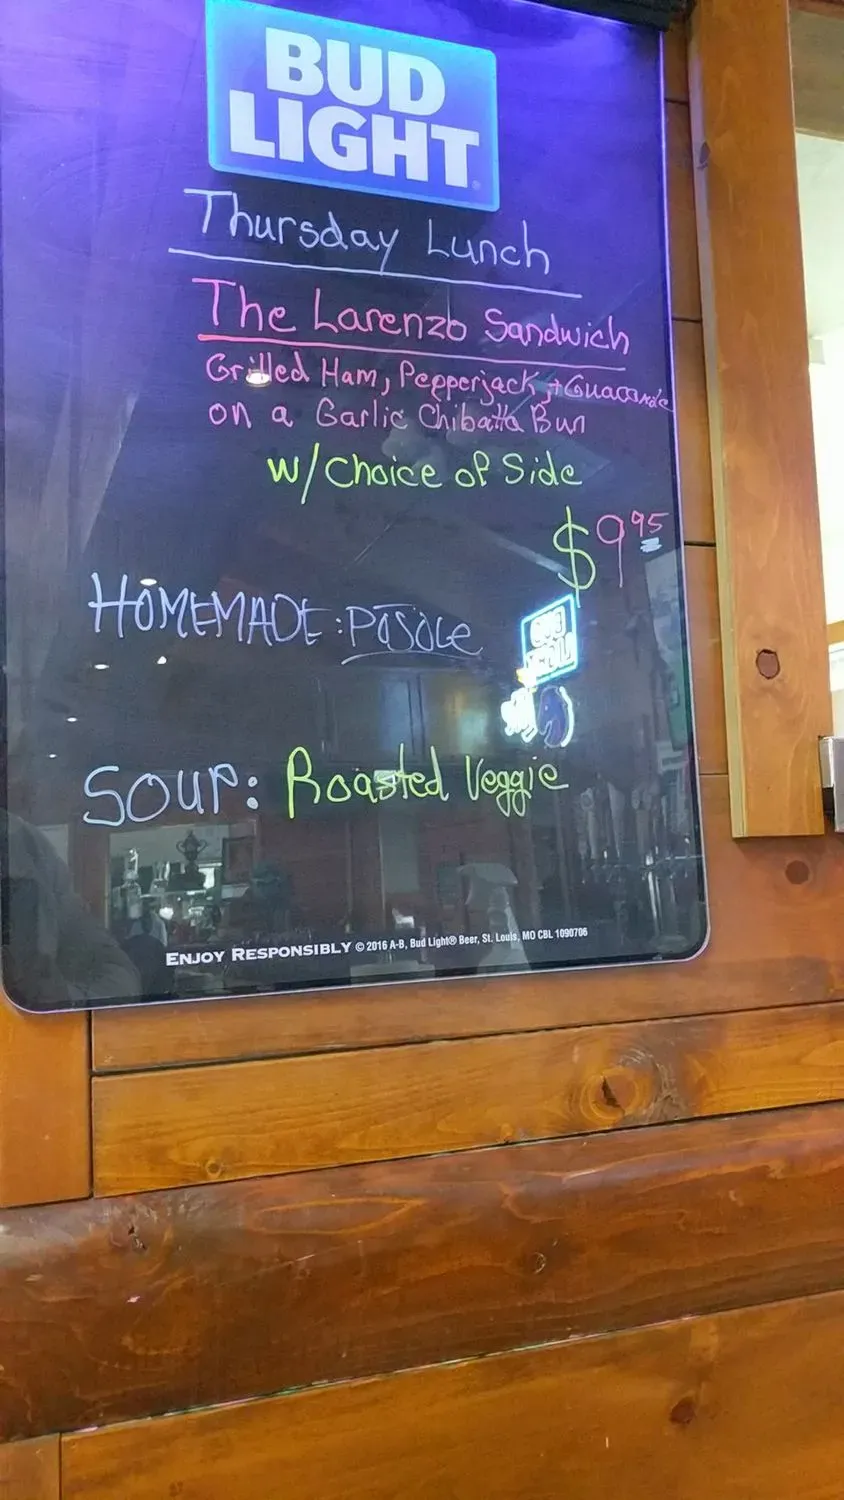 BUD
LIGHT
Thursday Lunch
The Larenzo Sandwich
Grilled Ham, Pepperjack, + Guacamole
on a Garlic Chibatta Bun
w/ Choice of Side
$9.95
HOMEMADE: POSOLE
SOUP: Roasted Veggie
ENJOY RESPONSIBLY © 2016 A-B, Bud Light® Beer, St. Louis, MO CBL 1090706